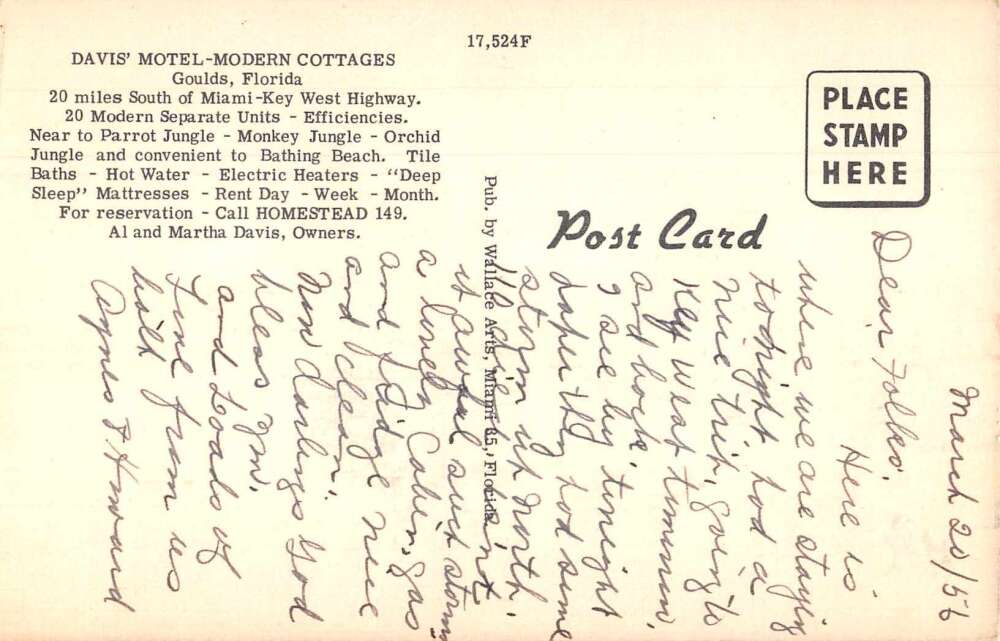 17,524F
DAVIS' MOTEL-MODERN COTTAGES
Goulds, Florida
20 miles South of Miami-Key West Highway.
20 Modern Separate Units - Efficiencies.
Near to Parrot Jungle - Monkey Jungle - Orchid
Jungle and convenient to Bathing Beach. Tile
Baths - Hot Water - Electric Heaters - "Deep
Sleep" Mattresses - Rent Day - Week - Month.
For reservation - Call HOMESTEAD 149.
Al and Martha Davis, Owners.
Pub. by Wallace Arts, Miami 35, Florida
PLACE
STAMP
HERE
Post Card
March 20/56
Dear Folks.
Here is
where we are staying
tonight had a
nice trip, going to
Key West tommrw,
and back,
I see by tonight
paper they had some
storm up North.
not
it awful such storm
a lovely Cabin, gas
and fridge nice
and clean,
Now darlings God
bless you.
and Loads of
Love from us
both
Agnes & Howard